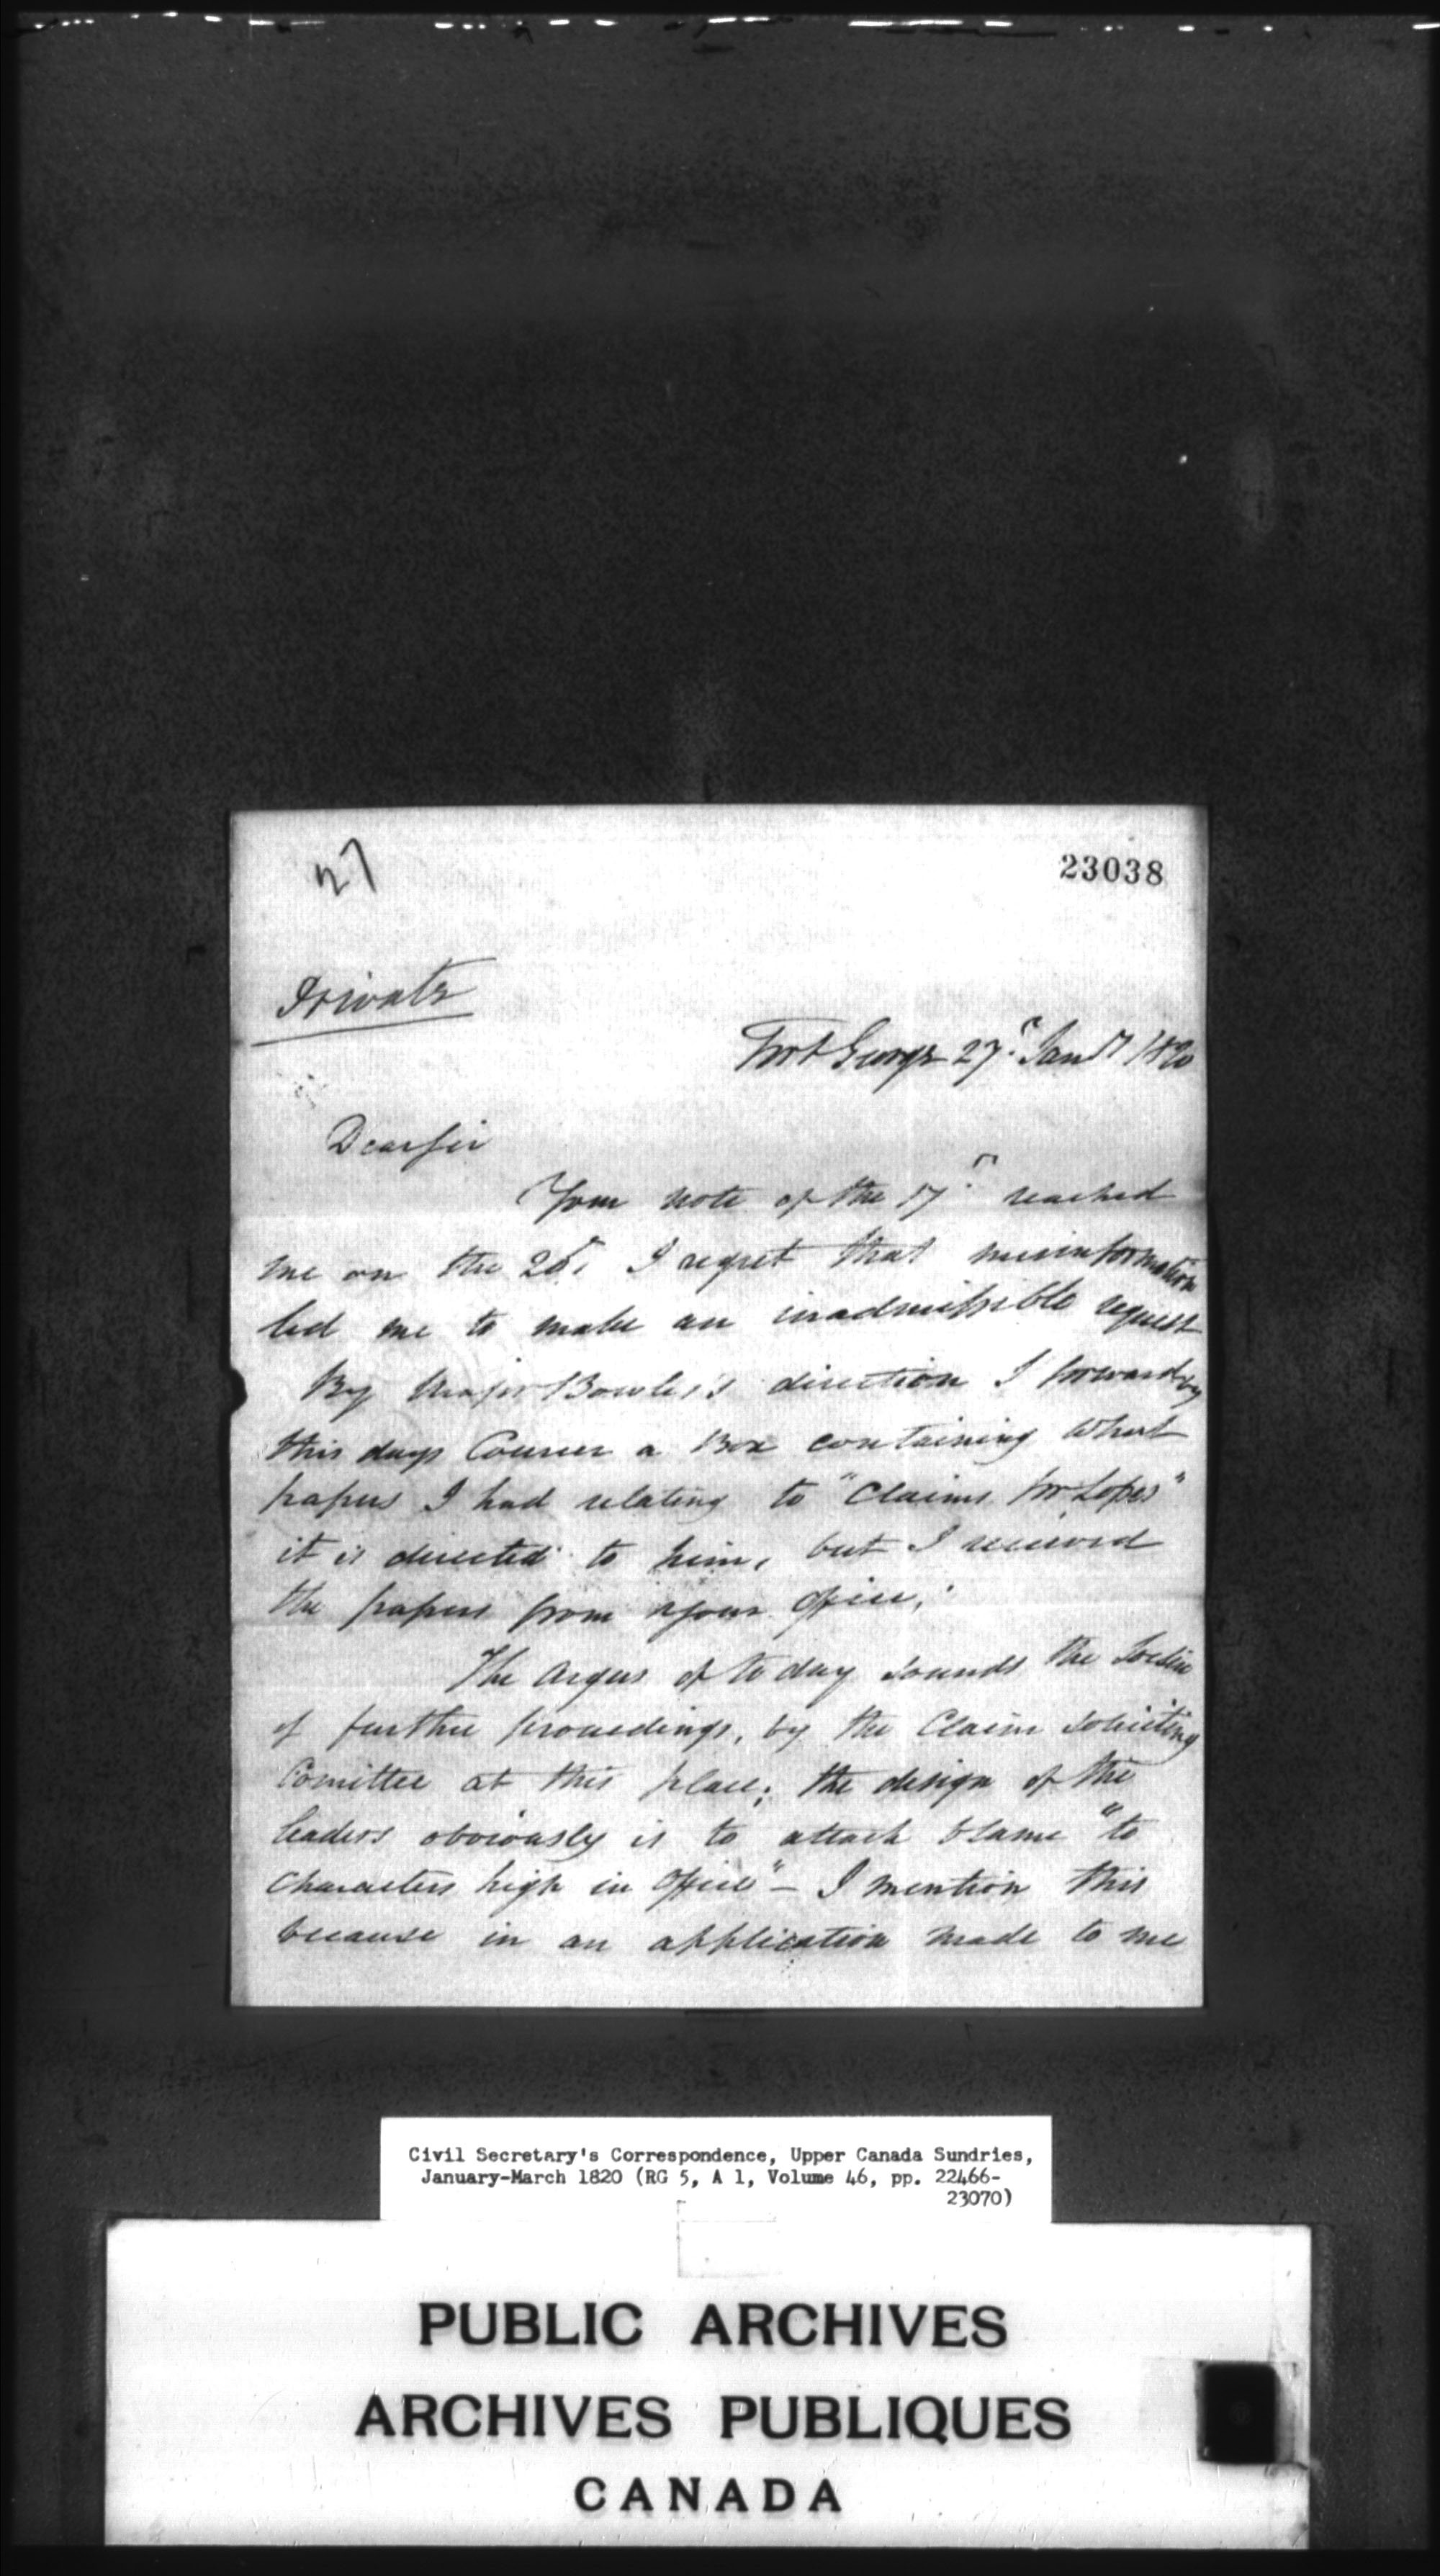 27
23038
Private
Fort George 27th Jany 1820
Dear Sir
Your note of the 17th reached
me on the 26th I regret that misinformation
led me to make an inadmissible request
By Major Bowles's direction I forward by
this days Courier a Box containing what
papers I had relating to "Claims for Losses"
it is directed to him, but I received
the papers from your Office,
The Argus of to day sounds the Tocsin
of further proceedings, by the Claim soliciting
Comittee at this place; the design of the
leaders obviously is to attach blame "to
Characters high in Office" – I mention this
because in an application made to me
Civil Secretary's Correspondence, Upper Canada Sundries,
January-March 1820 (RG 5, A 1, Volume 46, pp. 22466-
23070)
PUBLIC ARCHIVES
ARCHIVES PUBLIQUES
CANADA